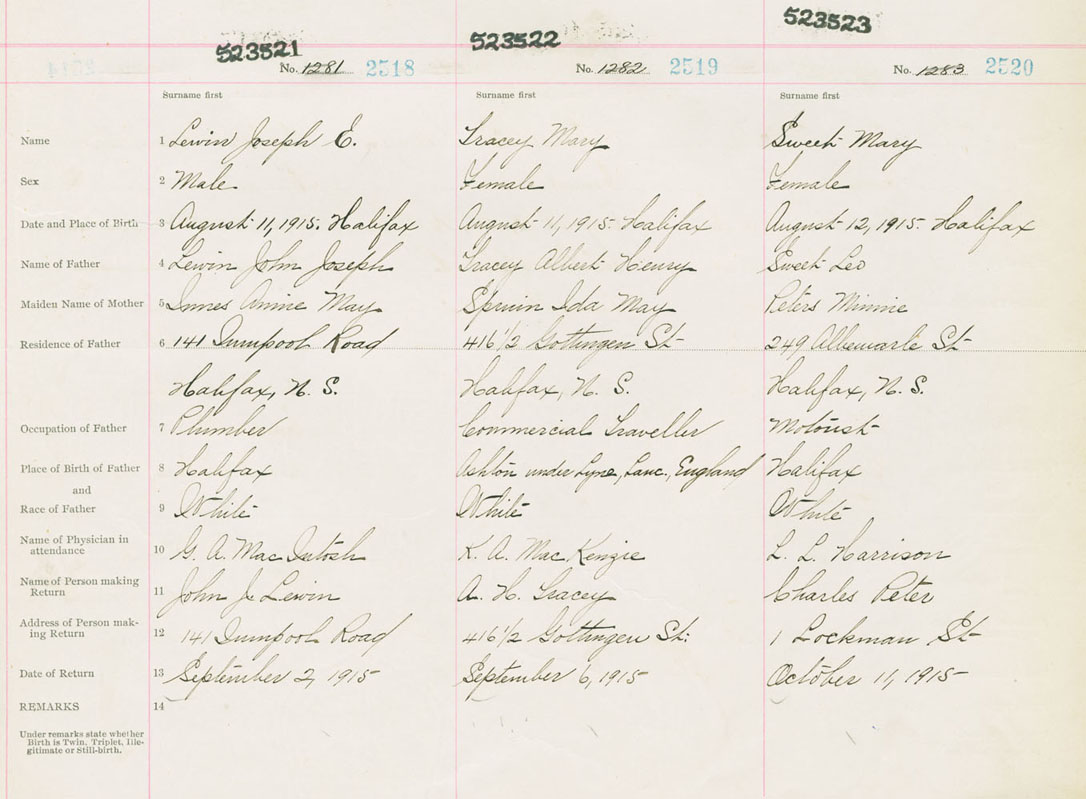 523521 523522 523523
No. 1281 2518 No. 1282 2519 No. 1283 2520
Surname first Surname first Surname first
Name 1 Lewin Joseph E. Tracey Mary Sweet Mary
Sex 2 Male Female Female
Date and Place of Birth 3 August 11, 1915. Halifax August 11, 1915. Halifax August 12, 1915. Halifax
Name of Father 4 Lewin John Joseph Tracey Albert Henry Sweet Leo
Maiden Name of Mother 5 Innes Annie May Ida May Peters Minnie
Residence of Father 6 141 Quinpool Road 416 1/2 Gottingen St 249 Albemarle St
Halifax, N. S. Halifax, N. S. Halifax, N. S.
Occupation of Father 7 Plumber Commercial Traveller Motorist
Place of Birth of Father 8 Halifax Ashton under Lyne, Lanc., England Halifax
and
Race of Father 9 White White White
Name of Physician in
attendance 10 G. A. Mac Intosh K. A. Mac Kenzie L. L. Harrison
Name of Person making
Return 11 John J. Lewin A. H. Tracey Charles Peter
Address of Person mak-
ing Return 12 141 Quinpool Road 416 1/2 Gottingen St. 1 Lockman St
Date of Return 13 September 2, 1915 September 6, 1915 October 11, 1915
REMARKS 14
Under remarks state whether
Birth is Twin, Triplet, Ille-
gitimate or Still-birth.